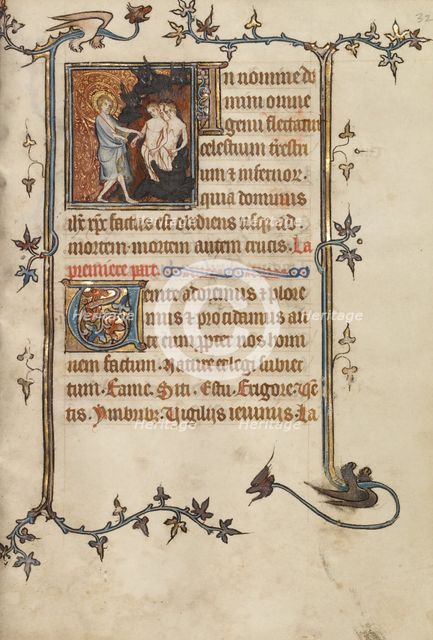 32
In nomine do
mini omne
genu flectatur
celestium t̃restri
um et infernor.
quia dominus
ih̃c xp̃c factus est obediens usq; ad
mortem. mortem autem crucis. La
premiere part.
Venite adoremus ⁊ plore
mus ⁊ procidamus an
te eum propter nos homi
nem factum. Nature et legi subiec
tum. Fame. Siti. Estu. Frigore.
tis. Ymbribꝫ. Vigiliis ieiuniis. La
Heritage Images